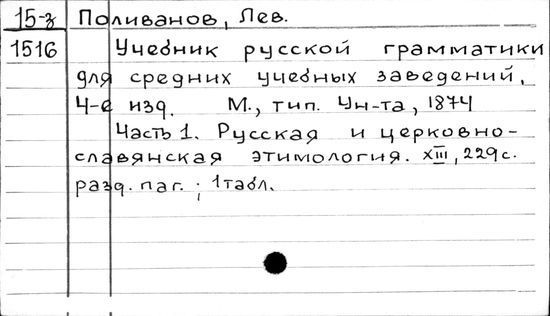 15-з Поливанов, Лев.
1516 Учебник русской грамматики
для средних учебных заведений.
4-е изд. М., тип. Ун-та, 1874
Часть 1. Русская и церковно-
славянская этимология. XIII, 229с.
разд. паг.; 1 табл.